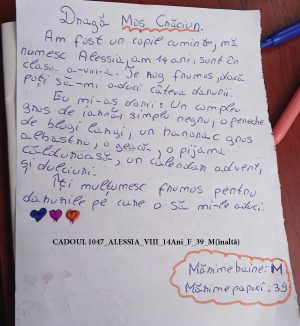 Dragă Moș Crăciun.
Am fost un copil cuminte, mă
numesc Alessia, am 14 ani, sunt în
clasa a-VIII-a. Te rog frumos, dacă
poți să-mi aduci câteva daruri.
Eu mi-aș dori: Un compleu
gros de iarnă, simplu negru, o pereche
de blugi largi, un hanorac gros
albastru, o geacă, o pijama
călduroasă, un calendar advent,
și dulciuri.
Îți mulțumesc frumos pentru
darurile pe care o să mi-le aduci.
CADOUL 1047_ALESSIA_VIII_14Ani_F_39_M(inaltă)
Mărime haine: M
Mărime papuci: 39